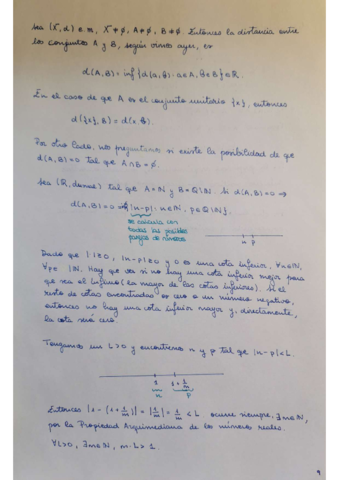 Sea (X,d) e.m, X≠∅, A≠∅, B≠∅. Entonces la distancia entre
los conjuntos A y B, según vimos ayer, es
d(A,B)=inf{d(a,b): a∈A, b∈B}∈ℝ.
En el caso de que A es el conjunto unitario {x}, entonces
d({x},B)=d(x,B).
Por otro lado, nos preguntamos si existe la posibilidad de que
d(A,B)=0 tal que A∩B=∅.
Sea (ℝ,dusual) tal que A=ℕ y B=ℚ\ℕ. Si d(A,B)=0 ⇒
d(A,B)=0=inf{|n-p|: n∈ℕ, p∈ℚ\ℕ}.
se calcula con
todas las posibles
parejas de números
n p
Dado que | |≥0, |n-p|≥0 y 0 es una cota inferior, ∀n∈ℕ,
∀p∈ \ℕ. Hay que ver si no hay una cota inferior mejor para
que sea el ínfimo (la mayor de las cotas inferiores). Si el
resto de cotas encontradas es cero o un número negativo,
entonces no hay una cota inferior mayor y, directamente,
la cota será cero.
Tengamos un L>0 y encontremos n y p tal que |n-p|<L.
1 1+1/m
n p
Entonces |1-(1+1/m)|=|1/m|=1/m<L ocurre siempre, ∃m∈ℕ,
por la Propiedad Arquimediana de los números reales.
∀L>0, ∃m∈ℕ, m·L>1.